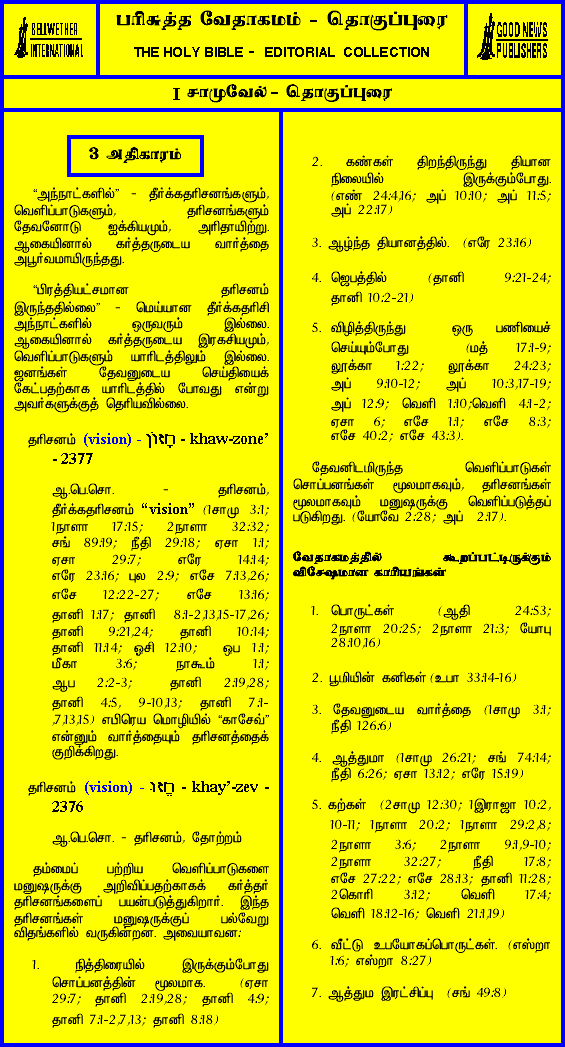 BELLWETHER
INTERNATIONAL
பரிசுத்த வேதாகமம் - தொகுப்புரை
THE HOLY BIBLE - EDITORIAL COLLECTION
GOOD NEWS
PUBLISHERS
I சாமுவேல் - தொகுப்புரை
3 அதிகாரம்
“அந்நாட்களில்” - தீர்க்கதரிசனங்களும்,
வெளிப்பாடுகளும், தரிசனங்களும்
தேவனோடு ஐக்கியமும், அரிதாயிற்று.
ஆகையினால் கர்த்தருடைய வார்த்தை
அபூர்வமாயிருந்தது.
“பிரத்தியட்சமான தரிசனம்
இருந்ததில்லை” - மெய்யான தீர்க்கதரிசி
அந்நாட்களில் ஒருவரும் இல்லை.
ஆகையினால் கர்த்தருடைய இரகசியமும்,
வெளிப்பாடுகளும் யாரிடத்திலும் இல்லை.
ஜனங்கள் தேவனுடைய செய்தியைக்
கேட்பதற்காக யாரிடத்தில் போவது என்று
அவர்களுக்குத் தெரியவில்லை.
தரிசனம் (vision) - חזון - khaw-zone’
- 2377
ஆ.பெ.சொ. - தரிசனம்,
தீர்க்கதரிசனம் “vision” (1சாமு 3:1;
1நாளா 17:15; 2நாளா 32:32;
சங் 89:19; நீதி 29:18; ஏசா 1:1;
ஏசா 29:7; எரே 14:14;
எரே 23:16; புல 2:9; எசே 7:13,26;
எசே 12:22-27; எசே 13:16;
தானி 1:17; தானி 8:1-2,13,15-17,26;
தானி 9:21,24; தானி 10:14;
தானி 11:14; ஒசி 12:10; ஒப 1:1;
மீகா 3:6; நாகூம் 1:1;
ஆப 2:2-3; தானி 2:19,28;
தானி 4:5, 9-10,13; தானி 7:1-
,7,13,15) எபிரெய மொழியில் “காசேவ்”
என்னும் வார்த்தையும் தரிசனத்தைக்
குறிக்கிறது.
தரிசனம் (vision) - חזו - khay’-zev -
2376
ஆ.பெ.சொ. - தரிசனம், தோற்றம்
தம்மைப் பற்றிய வெளிப்பாடுகளை
மனுஷருக்கு அறிவிப்பதற்காகக் கர்த்தர்
தரிசனங்களைப் பயன்படுத்துகிறார். இந்த
தரிசனங்கள் மனுஷருக்குப் பல்வேறு
விதங்களில் வருகின்றன. அவையாவன:
1. நித்திரையில் இருக்கும்போது
சொப்பனத்தின் மூலமாக. (ஏசா
29:7; தானி 2:19,28; தானி 4:9;
தானி 7:1-2,7,13; தானி 8:18)
2. கண்கள் திறந்திருந்து தியான
நிலையில் இருக்கும்போது.
(எண் 24:4,16; அப் 10:10; அப் 11:5;
அப் 22:17)
3. ஆழ்ந்த தியானத்தில். (எரே 23:16)
4. ஜெபத்தில் (தானி 9:21-24;
தானி 10:2-21)
5. விழித்திருந்து ஒரு பணியைச்
செய்யும்போது (மத் 17:1-9;
லூக்கா 1:22; லூக்கா 24:23;
அப் 9:10-12; அப் 10:3,17-19;
அப் 12:9; வெளி 1:10;வெளி 4:1-2;
ஏசா 6; எசே 1:1; எசே 8:3;
எசே 40:2; எசே 43:3).
தேவனிடமிருந்த வெளிப்பாடுகள்
சொப்பனங்கள் மூலமாகவும், தரிசனங்கள்
மூலமாகவும் மனுஷருக்கு வெளிப்படுத்தப்
படுகிறது. (யோவே 2:28; அப் 2:17).
வேதாகமத்தில் கூறப்பட்டிருக்கும்
விசேஷமான காரியங்கள்
1. பொருட்கள் (ஆதி 24:53;
2நாளா 20:25; 2நாளா 21:3; யோபு
28:10,16)
2. பூமியின் கனிகள் (உபா 33:14-16)
3. தேவனுடைய வார்த்தை (1சாமு 3:1;
நீதி 126:6)
4. ஆத்துமா (1சாமு 26:21; சங் 74:14;
நீதி 6:26; ஏசா 13:12; எரே 15:19)
5. கற்கள் (2சாமு 12:30; 1இராஜா 10:2,
10-11; 1நாளா 20:2; 1நாளா 29:2,8;
2நாளா 3:6; 2நாளா 9:1,9-10;
2நாளா 32:27; நீதி 17:8;
எசே 27:22; எசே 28:13; தானி 11:28;
2கொரி 3:12; வெளி 17:4;
வெளி 18:12-16; வெளி 21:1,19)
6. வீட்டு உபயோகப்பொருட்கள். (எஸ்றா
1:6; எஸ்றா 8:27)
7. ஆத்தும இரட்சிப்பு (சங் 49:8)